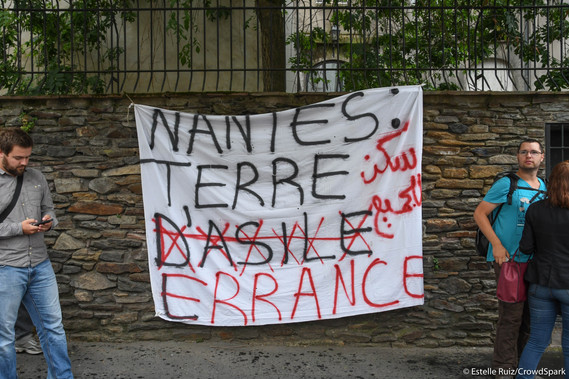 NANTES.
TERRE
D'ASILE
ERRANCE
سكن
للجميع
© Estelle Ruiz/CrowdSpark